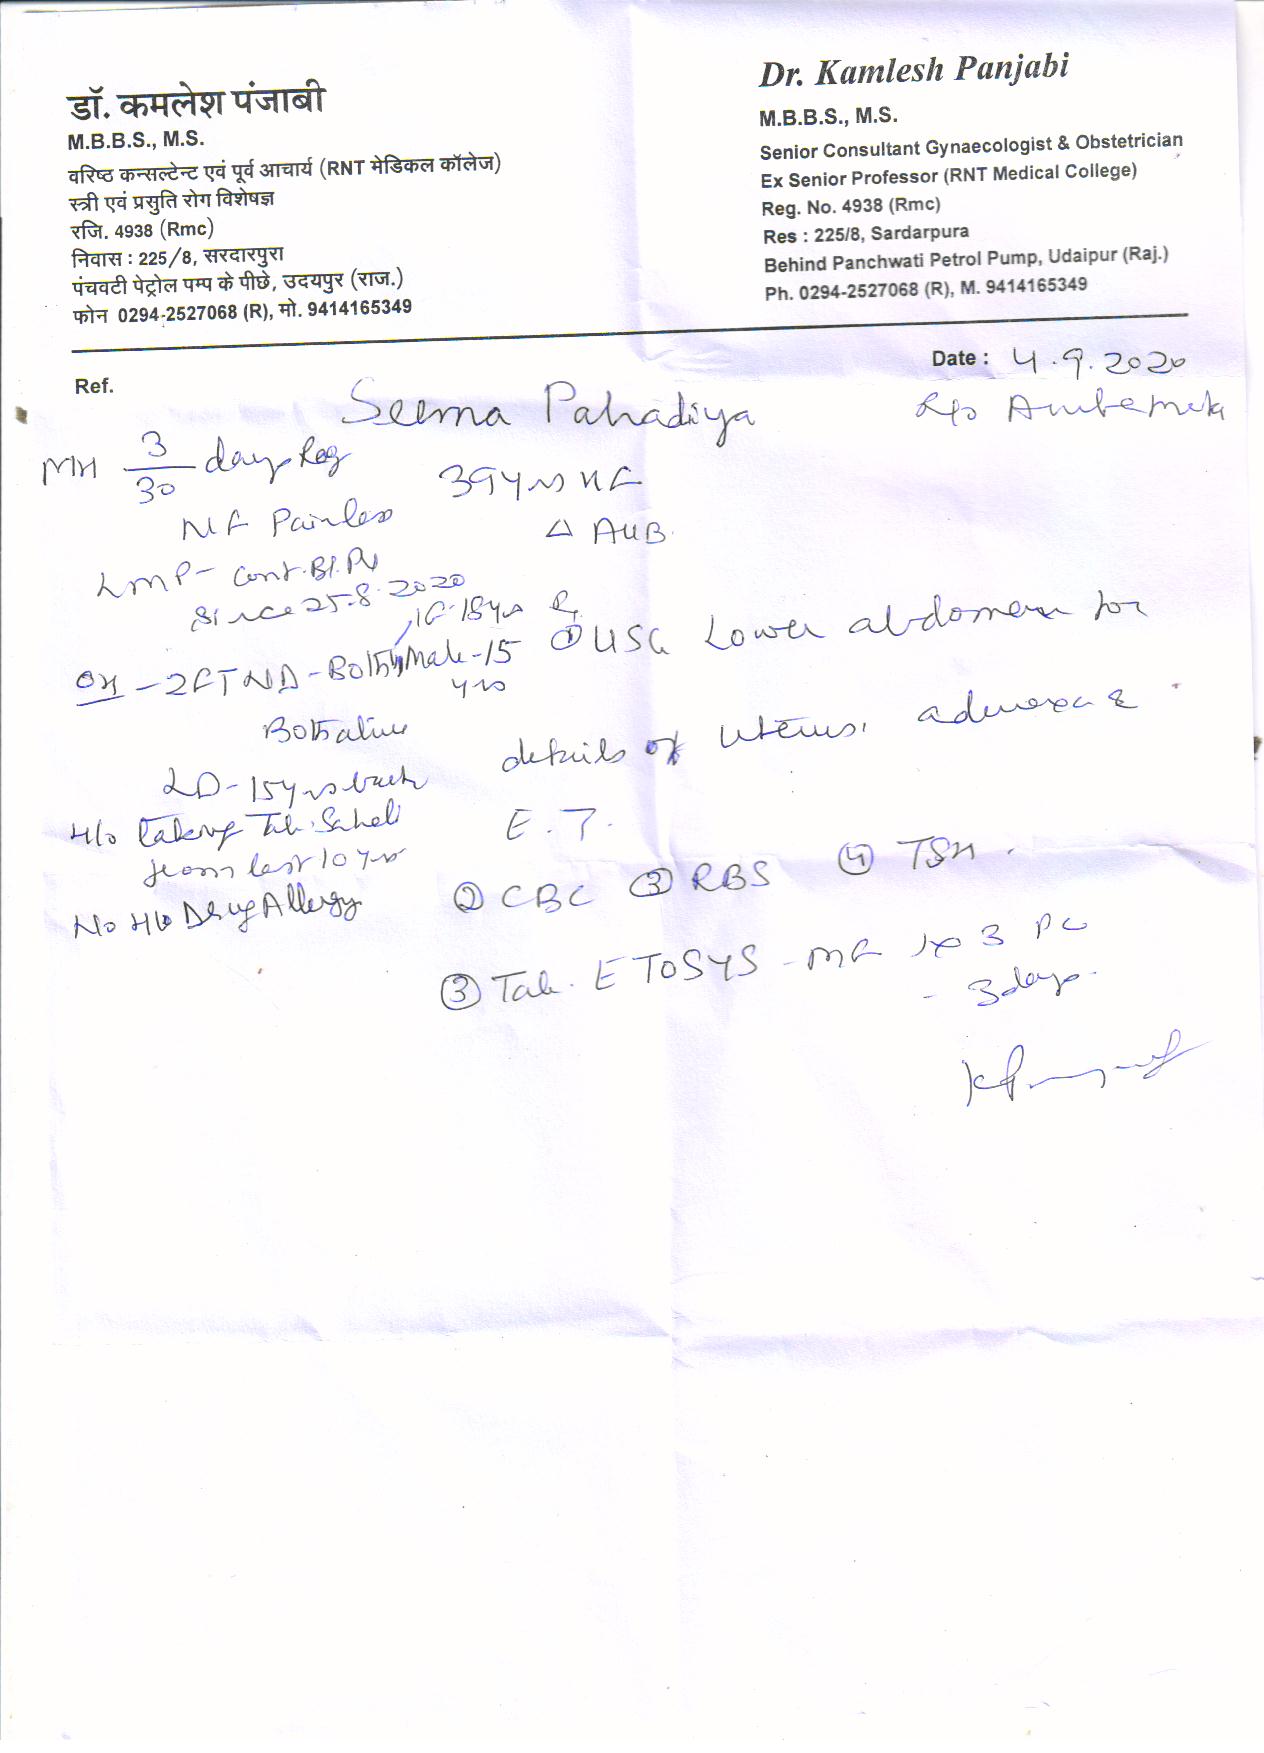 डॉ. कमलेश पंजाबी
M.B.B.S., M.S.
वरिष्ठ कन्सल्टेन्ट एवं पूर्व आचार्य (RNT मेडिकल कॉलेज)
स्त्री एवं प्रसुति रोग विशेषज्ञ
रजि. 4938 (Rmc)
निवास : 225/8, सरदारपुरा
पंचवटी पेट्रोल पम्प के पीछे, उदयपुर (राज.)
फोन 0294-2527068 (R), मो. 9414165349
Dr. Kamlesh Panjabi
M.B.B.S., M.S.
Senior Consultant Gynaecologist & Obstetrician
Ex Senior Professor (RNT Medical College)
Reg. No. 4938 (Rmc)
Res : 225/8, Sardarpura
Behind Panchwati Petrol Pump, Udaipur (Raj.)
Ph. 0294-2527068 (R), M. 9414165349
Date : 4.9.2020
Ref.
Seema Pahadiya
R/o
39 yrs
Δ AUB.
MH 3/30 days Reg
NF Painless
LMP - Cont. Bl. PV
Since 25.8.2020
OH - 2FTND - Both Male - 15
yrs
Both alive
LD - 15 yrs back
H/o taking Tab. Saheli
from last 10 yrs
No H/o Drug Allergy
① USG Lower abdomen for
details of Uterus, adnexa &
E.T.
② CBC ③ RBS ④ TSH.
③ Tab. ETOSYS - MF 1x3 PC
- 3 days.